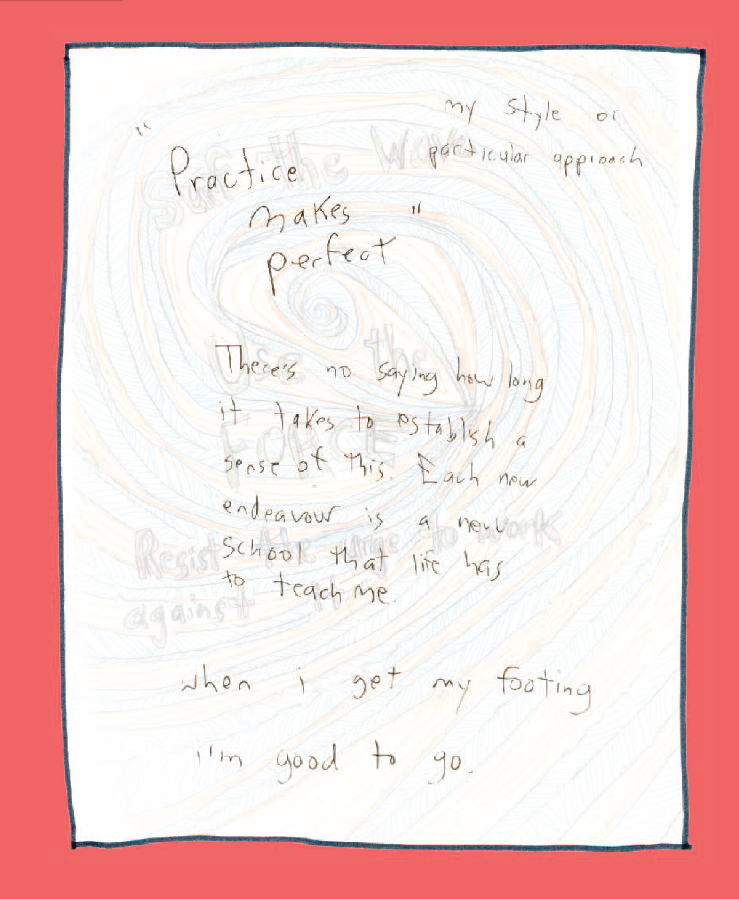 my style or
particular approach
"Practice
makes "
perfect
Surf the Wave
Use the
FORCE
There's no saying how long
it takes to establish a
sense of this. Each new
endeavour is a new
school that life has
to teach me.
Resist the urge to work
against it
when i get my footing
i'm good to go.